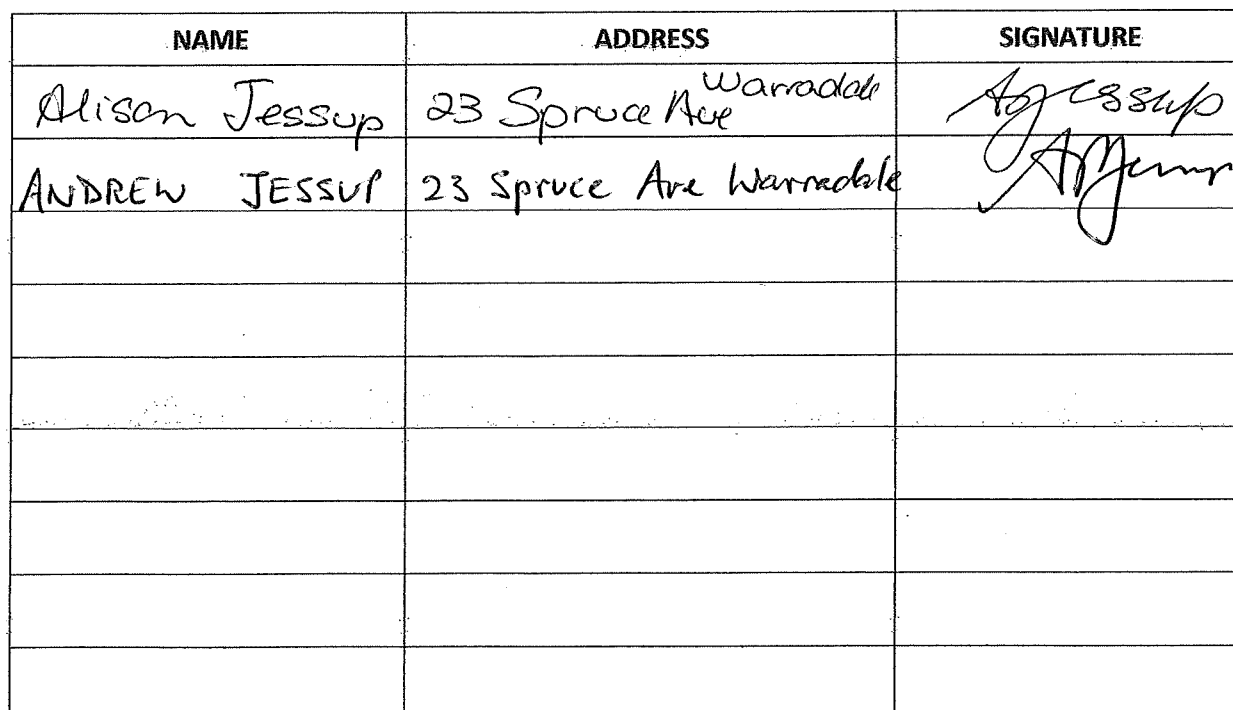 NAME ADDRESS SIGNATURE
Alison Jessup 23 Spruce Ave Warradale AJJessup
ANDREW JESSUP 23 Spruce Ave Warradale